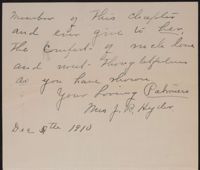 Member of this chapter
and ever give to her,
The Comfort of such love
and sweet thoughtfulness
as you have shown.
Your Loving Patroness
Mrs J. R. Hyder
Dec 8th 1910